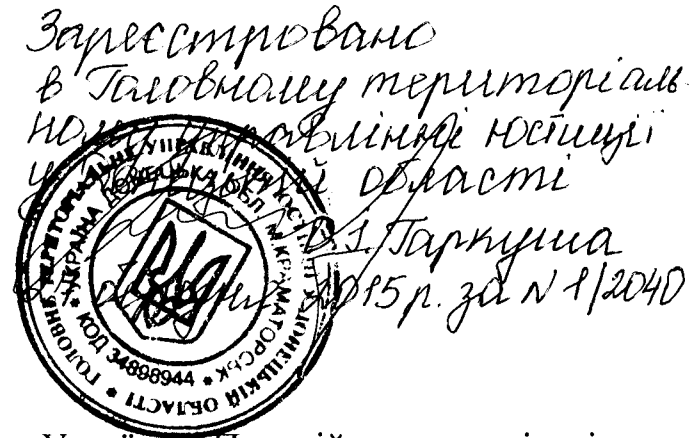 Зареєстровано
в Головному територіаль-
ному управлінні юстиції
у Донецькій області
І. Гаркуша
2015 р. за № 1/2040
ГОЛОВНЕ ТЕРИТОРІАЛЬНЕ УПРАВЛІННЯ ЮСТИЦІЇ У ДОНЕЦЬКІЙ ОБЛАСТІ *
* УКРАЇНА ДОНЕЦЬКА ОБЛ. М.КРАМАТОРСЬК *
КОД 34898944